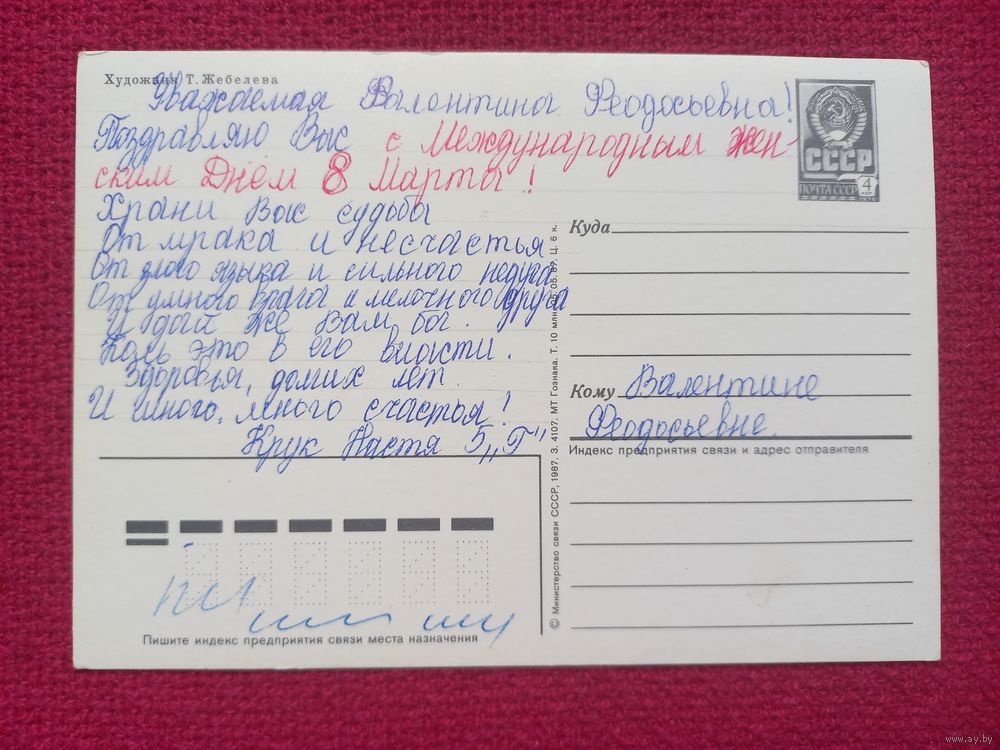 Художник Т. Жебелева
Уважаемая Валентина Феодосьевна!
Поздравляю Вас с Международным жен-
ским Днём 8 Марта!
Храни Вас судьба
От мрака и несчастья
От злого языка и сильного недуга
От умного врага и мелочного друга
И дай же Вам, бог.
Коль это в его власти.
Здоровья, долгих лет.
И много, много счастья!
Крук Настя 5 „Г"
СССР
ПОЧТА СССР
4
коп
1976
Куда
Кому Валентине
Феодосьевне.
Индекс предприятия связи и адрес отправителя
© Министерство связи СССР, 1987. З. 4107. МТ Гознака. Т. 10 млн. 05. 05. 87. Ц. 6 к.
Пишите индекс предприятия связи места назначения
www.ay.by